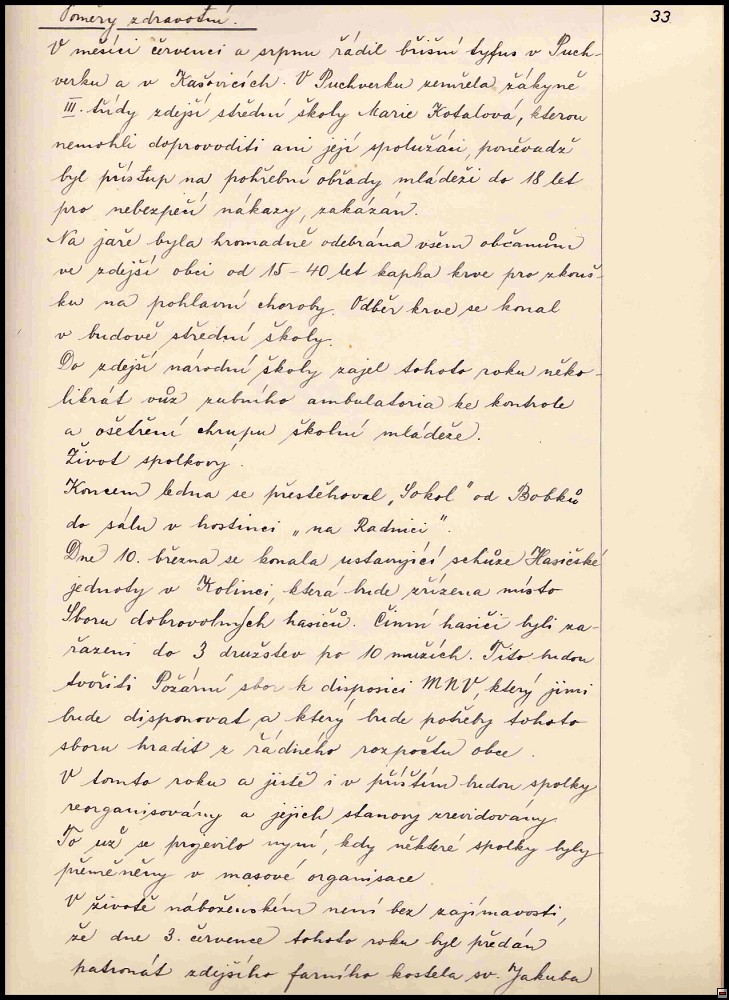 33
Poměry zdravotní.
V měsíci červenci a srpnu řádil břišní tyfus v Puch-
verku a v Kašovicích. V Puchverku zemřela žákyně
III. třídy zdejší střední školy Marie Kotalová, kterou
nemohli doprovoditi ani její spolužáci, poněvadž
byl přístup na pohřební obřady mládeži do 18 let
pro nebezpečí nákazy, zakázán.
Na jaře byla hromadně odebrána všem občanům
ve zdejší obci od 15-40 let kapka krve pro zkouš-
ku na pohlavní choroby. Odběr krve se konal
v budově střední školy.
Do zdejší národní školy zajel tohoto roku něko-
likrát vůz zubního ambulatoria ke kontrole
a ošetření chrupu školní mládeže.
Život spolkový.
Koncem ledna se přestěhoval „Sokol" od Bobků
do sálu v hostinci „na Radnici".
Dne 10. března se konala ustavující schůze Hasičské
jednoty v Kolinci, která bude zřízena místo
Sboru dobrovolných hasičů. Činní hasiči byli za-
řazeni do 3 družstev po 10 mužích. Tito budou
tvořiti Požární sbor k disposici MNV, který jimi
bude disponovat a který bude potřeby tohoto
sboru hradit z řádného rozpočtu obce.
V tomto roku a jistě i v příštím budou spolky
reorganisovány a jejich stanovy zrevidovány.
To už se projevilo nyní, kdy některé spolky byly
přeměněny v masové organisace
V životě náboženském není bez zajímavosti,
že dne 3. července tohoto roku byl předán
patronát zdejšího farního kostela sv. Jakuba